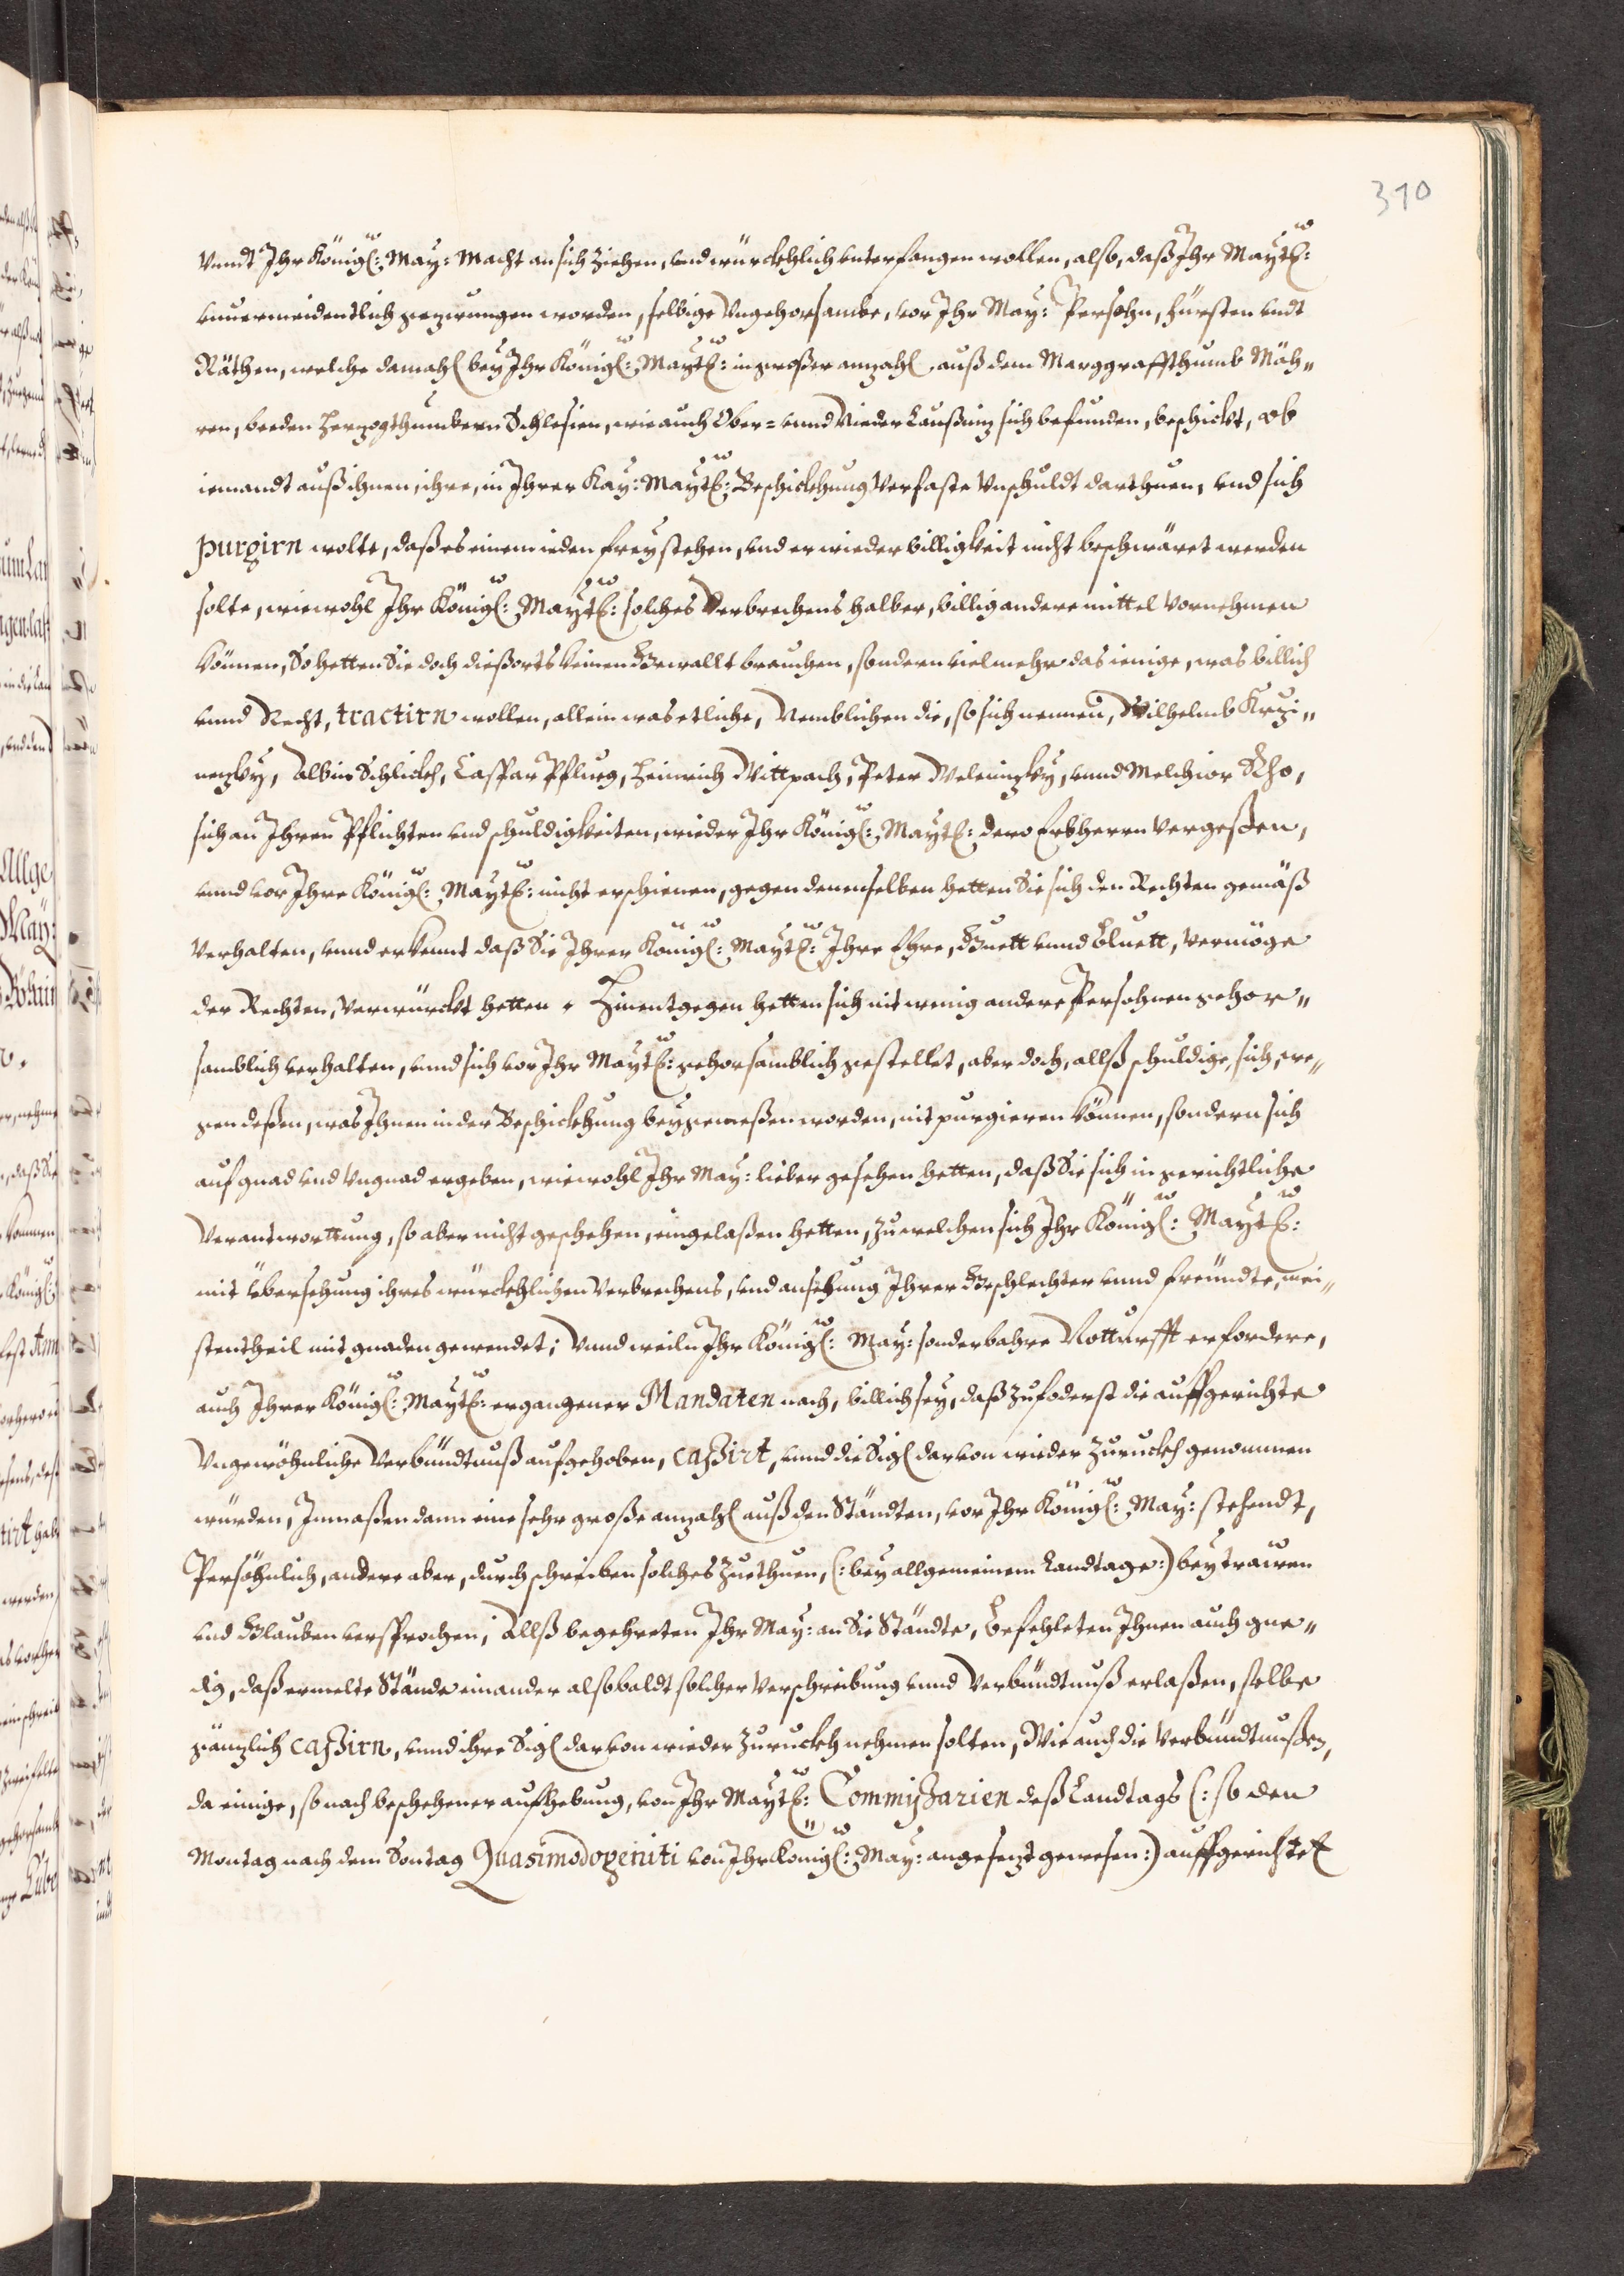 310
Vnndt Ihr Königl: May: Macht an sich ziehen, und würckhlich unterfangen wollen, also, daß Ihr Maytt:
unuermeidentlich gezwungen worden, selbige Ungehorsambe, vor Ihr May: Persohn, Fürsten undt
Räthen, welche damahl bey Ihr Königl: Maytt: in großer anzahl, auß dem Marggraffthumb Mäh„
ren, beeden Herzogthumbern Schlesien, wie auch Ober= unnd Nieder Laußnitz sich befunden, beschickt, ob
iemandt auß ihnen, ihre, in Ihrer Kay: Maytt: Beschickhung Verfaste Unschuldt darthuen, und sich
purgirn wolte, daß es einem ieden frey stehen, und er wieder billigkeit nicht beschwäret werden
solte, wiewohl Ihr Königl: Maytt: solches Verbrechens halber, billig andere mittel Vornehmen
können, So hetten Sie doch dießorts keinen Gewallt brauchen, sondern vielmehr das ienige, was billich
unnd Recht, tractirn wollen, allein was etliche, Nemblichen die, so sich nennen, Wilhelmb Krzi„
nezky, Albin Schlickh, Caspar Pflueg, Heinrich Wittpach, Peter Weleinzky, unnd Melchior Rho,
sich an Ihren Pflichten und schuldigkeiten, wieder Ihr Königl: Maytt: dero Erbherrn Vergeßen,
unnd vor Ihre Königl: Maytt: nicht erschienen, gegen denenselben hetten Sie sich den Rechten gemäß
Verhalten, unnd erkennt daß Sie Ihrer Königl: Maytt: Ihre Ehre, Guett unnd Bluett, Vermöge
der Rechten, Verwürckt hetten. Hinentgegen hetten sich nit wenig andere Persohnen gehor„
samblich verhalten, unnd sich vor Ihr Maytt: gehorsamblich gestellet, aber doch, allß schuldige, sich, we„
gen deßen, was Ihnen in der Beschickhung beygemeßen worden, nit purgieren können, sondern sich
auf gnad und Ungnad ergeben, wiewohl Ihr May: lieber gesehen hetten, daß Sie sich in gerichtliche
Verantworttung, so aber nicht geschehen, eingelaßen hetten, zu welchen sich Ihr Königl: Maytt:
mit übersehung ihres würckhlichen Verbrechens, und ansehung Ihrer Geschlechter unnd freündte, mei„
stentheil mit gnaden gewendet; Unnd weiln Ihr Königl: May: sonderbahre Notturfft erfordere,
auch Ihrer Königl: Maytt: ergangener Mandaten nach, billich sey, daß zufoderst die auffgerichte
Ungewöhnliche Verbündtnuß aufgehoben, caßirt, unnd die Sigl darvon wieder zuruckh genommen
würden, Inmaßen dann eine sehr große anzahl auß den Ständten, vor Ihr Königl: May: stehendt,
Persöhnlich, andere aber, durch schreiben solches zuthuen, (: bey allgemeinem Landtage :) bey trawen
und Glauben versprochen, Allß begehreten Ihr May: an Sie Ständte, befehleten Ihnen auch gne„
dig, daß ermelte Stände einander alsobaldt solcher Verschreibung unnd Verbündtnuß erlaßen, selbe
gänzlich caßirn, unnd ihre Sigl darvon wieder zuruckh nehmen solten, Wie auch die Verbündtnußen,
da einige, so nach beschehener aufhebung, von Ihr Maytt: Commißarien deß Landtags (: so den
Montag nach dem Sontag Quasimodogeniti von Ihr Königl: May: angesezt gewesen :) auffgerichtet